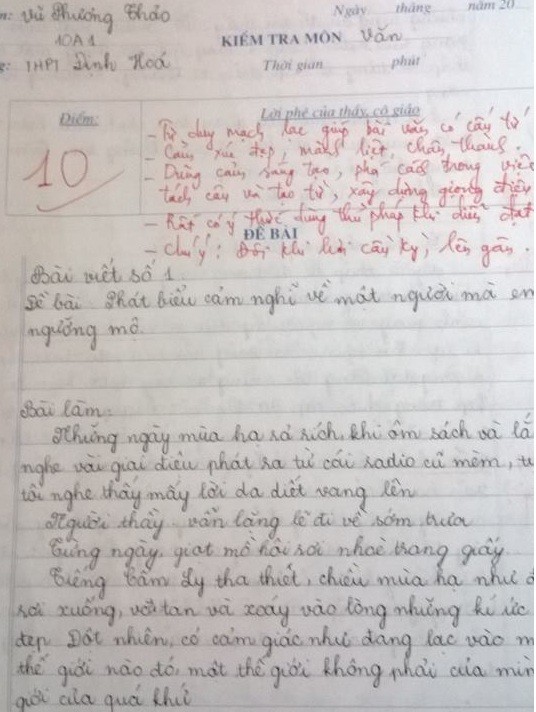 n: Vũ Phương Thảo
Ngày tháng năm 20
10A1
KIỂM TRA MÔN Văn
g: THPT Định Hoá
Thời gian phút
Điểm:
Lời phê của thầy, cô giáo
10
- Tư duy mạch lạc giúp bài văn có cấu tứ
- Cảm xúc đẹp, mãnh liệt, chân thành.
- Dùng câu sáng tạo, phá cách trong việc
tách câu và tạo từ, xây dựng giọng điệu
- Rất có ý thức dùng thủ pháp khi diễn đạt
ĐỀ BÀI
- Chú ý: Đôi khi hơi cầu kỳ, lên gân.
Bài viết số 1.
Đề bài: Phát biểu cảm nghĩ về một người mà em
ngưỡng mộ.
Bài làm:
Những ngày mùa hạ rả rích, khi ôm sách và lắ
nghe vài giai điệu phát ra từ cái radio cũ mèm, t
tôi nghe thấy mấy lời da diết vang lên
Người thầy vẫn lặng lẽ đi về sớm trưa
Từng ngày, giọt mồ hôi rơi nhoè trang giấy
Tiếng Cẩm Ly tha thiết, chiều mùa hạ như
rơi xuống, vỡ tan và xoáy vào lòng những kí ức
đẹp. Đột nhiên, có cảm giác như đang lạc vào m
thế giới nào đó, một thế giới không phải của mìn
giới của quá khứ